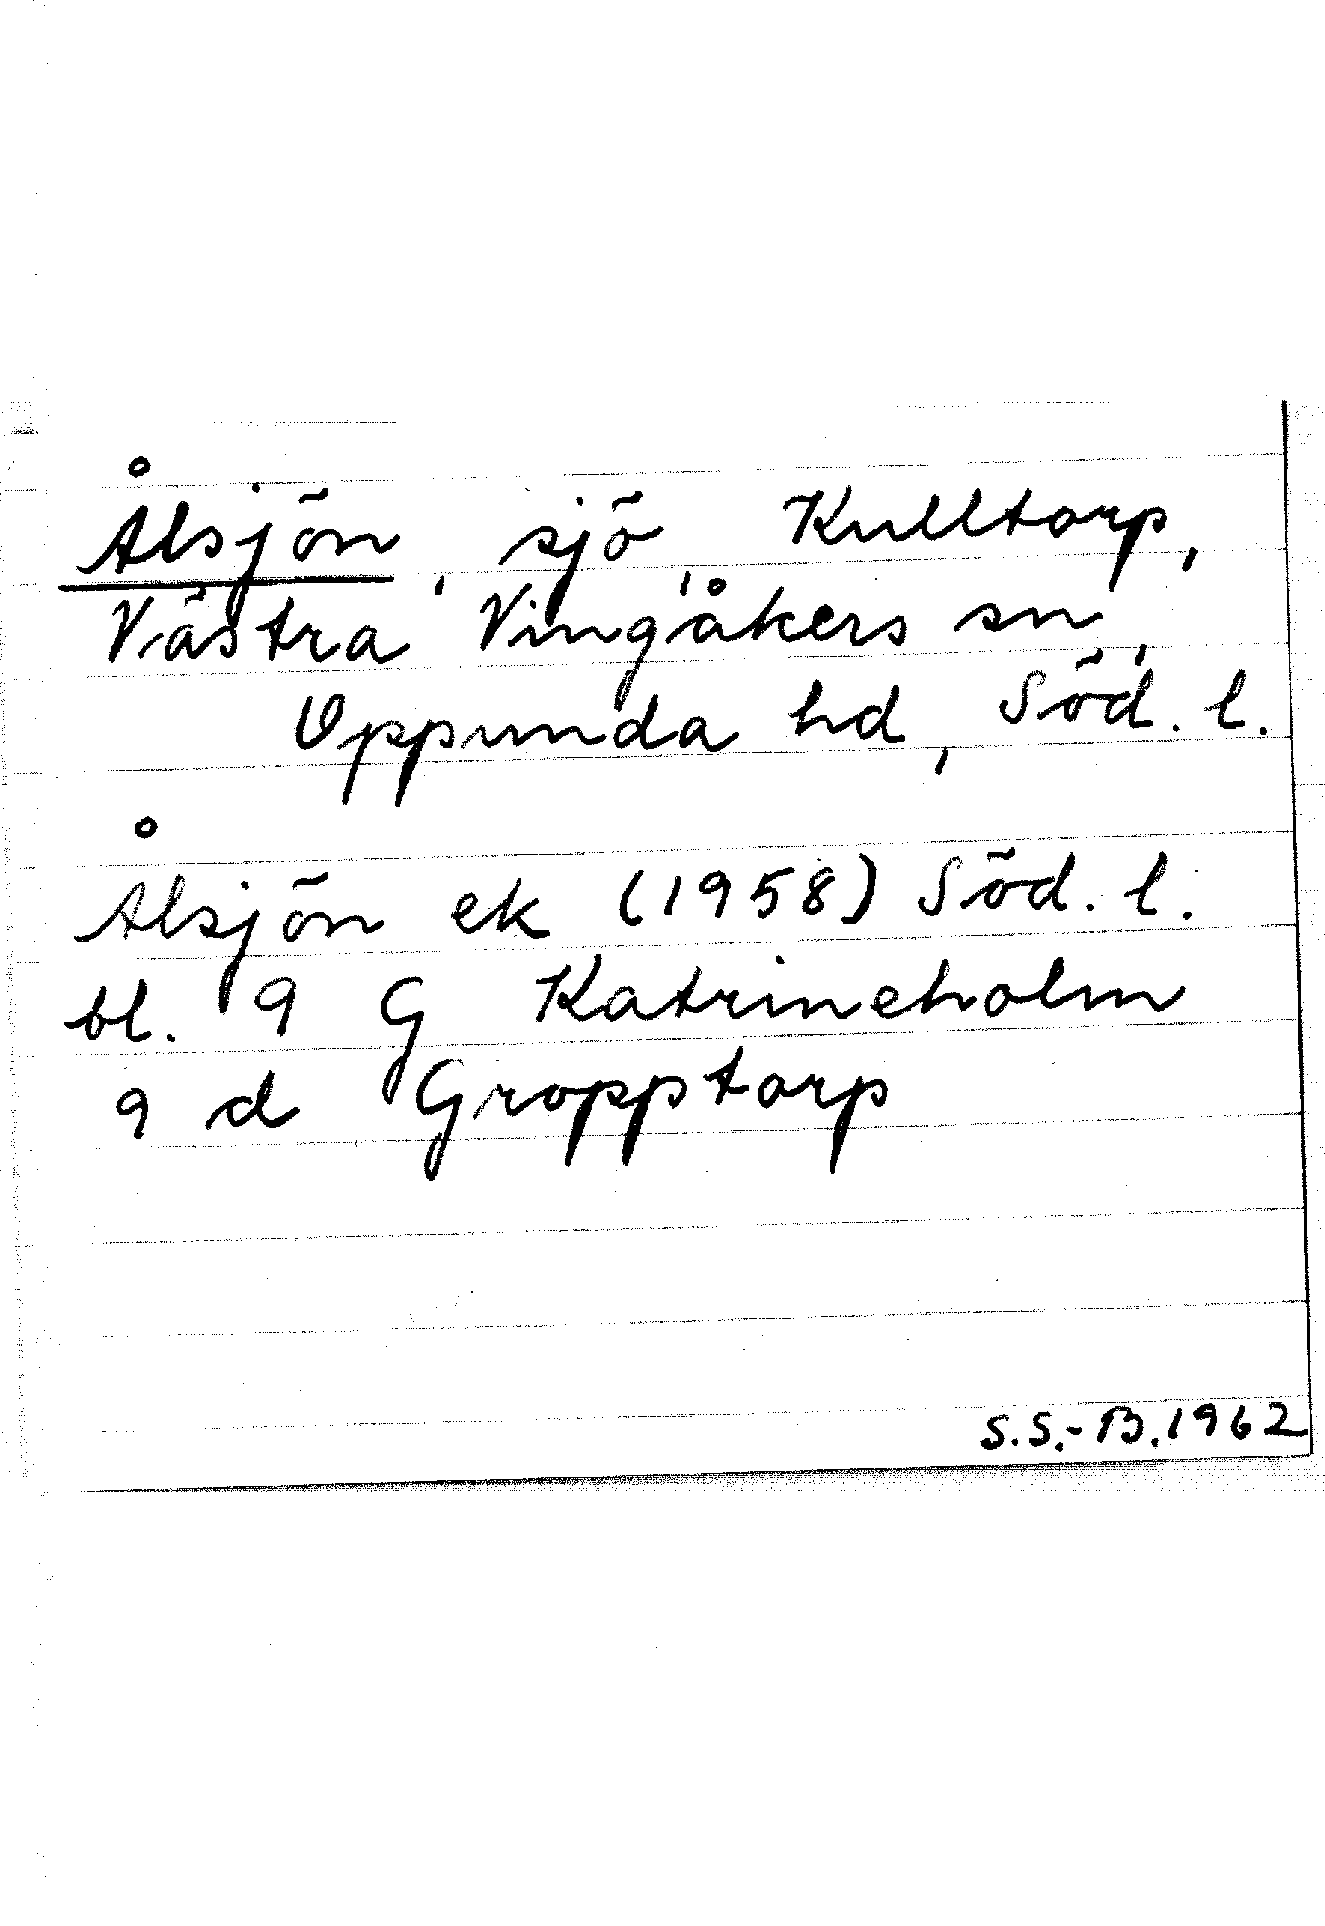 Ålsjön, sjö, Kulltorp,
Västra Vingåkers sn,
Oppunda hd, Söd. l.
Ålsjön ek (1958) Söd. l.
bl. 9 G Katrineholm
9 d Gropptorp
S.S.-B.1962